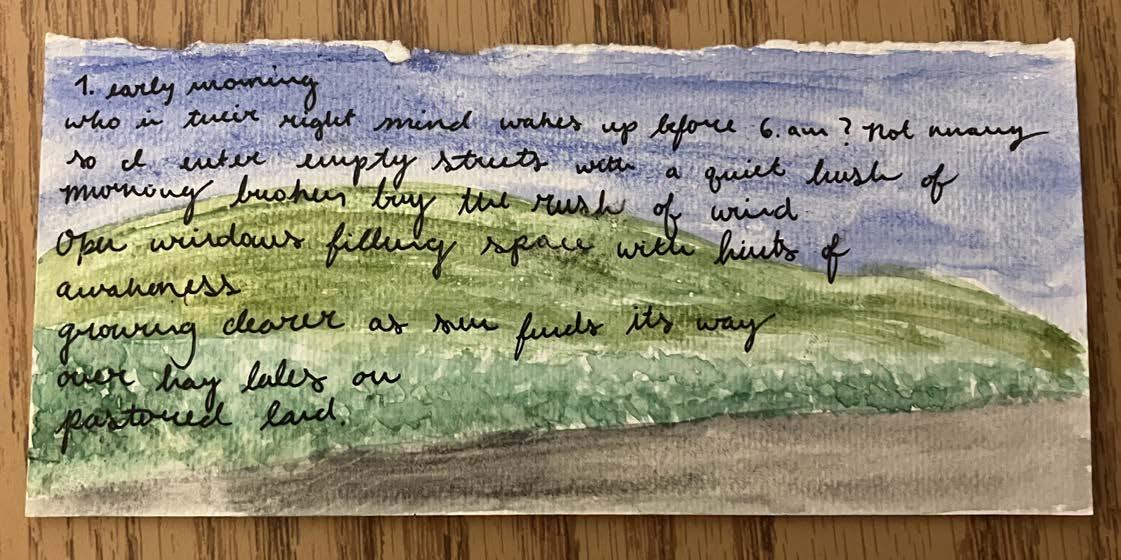 1. early morning
who in their right mind wakes up before 6. am? Not many
so I enter empty streets with a quiet hush of
morning broken buy the rush of wind
Open windows filling space with hints of
awakeness
growing clearer as sun finds its way
over hay bales on
pastored land.